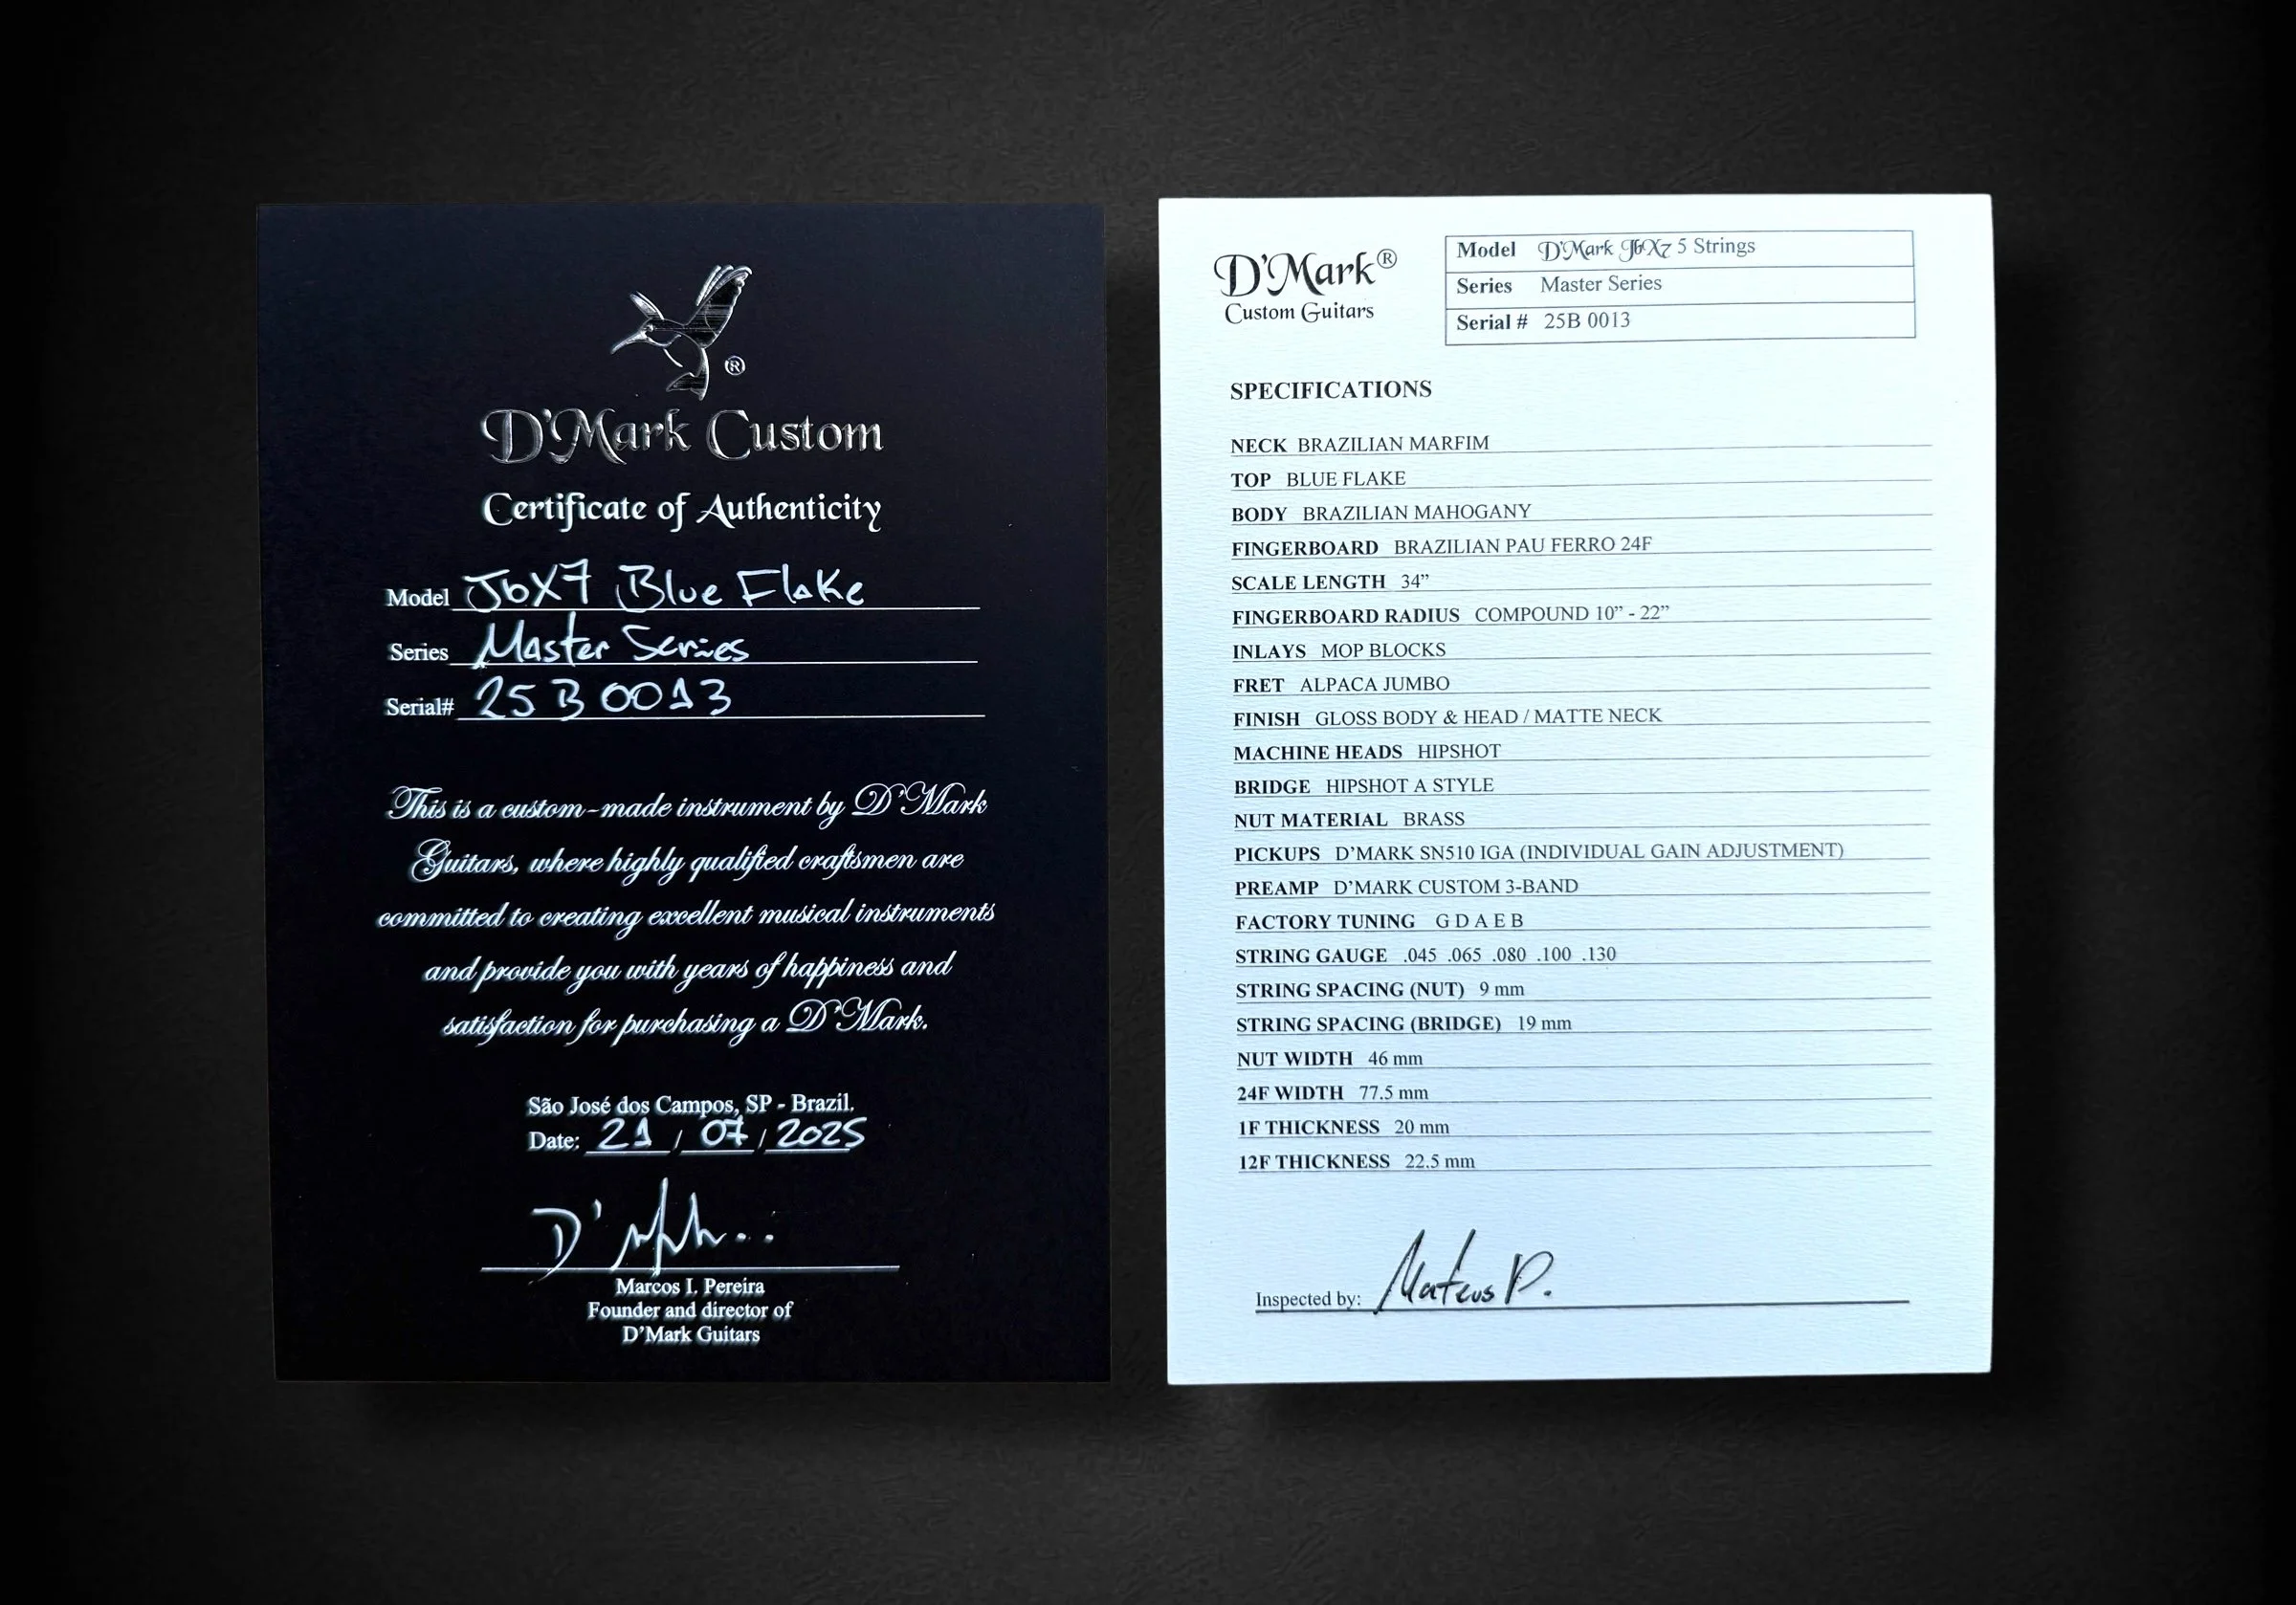 ®
D'Mark Custom
Certificate of Authenticity
Model J6X7 Blue Flake
Series Master Series
Serial# 25B 0013
This is a custom-made instrument by D'Mark
Guitars, where highly qualified craftsmen are
committed to creating excellent musical instruments
and provide you with years of happiness and
satisfaction for purchasing a D'Mark.
São José dos Campos, SP - Brazil.
Date: 21 / 07 / 2025
Marcos I. Pereira
Founder and director of
D'Mark Guitars
D'Mark®
Custom Guitars
Model D'Mark J6X7 5 Strings
Series Master Series
Serial # 25B 0013
SPECIFICATIONS
NECK BRAZILIAN MARFIM
TOP BLUE FLAKE
BODY BRAZILIAN MAHOGANY
FINGERBOARD BRAZILIAN PAU FERRO 24F
SCALE LENGTH 34”
FINGERBOARD RADIUS COMPOUND 10” - 22”
INLAYS MOP BLOCKS
FRET ALPACA JUMBO
FINISH GLOSS BODY & HEAD / MATTE NECK
MACHINE HEADS HIPSHOT
BRIDGE HIPSHOT A STYLE
NUT MATERIAL BRASS
PICKUPS D'MARK SN510 IGA (INDIVIDUAL GAIN ADJUSTMENT)
PREAMP D'MARK CUSTOM 3-BAND
FACTORY TUNING G D A E B
STRING GAUGE .045 .065 .080 .100 .130
STRING SPACING (NUT) 9 mm
STRING SPACING (BRIDGE) 19 mm
NUT WIDTH 46 mm
24F WIDTH 77.5 mm
1F THICKNESS 20 mm
12F THICKNESS 22.5 mm
Inspected by: Mateus P.